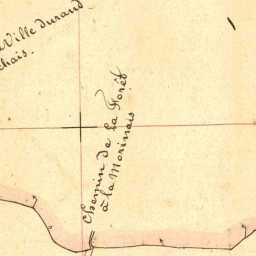 Ville durand
chais.
Chemin de La Forêt
à la Morinais